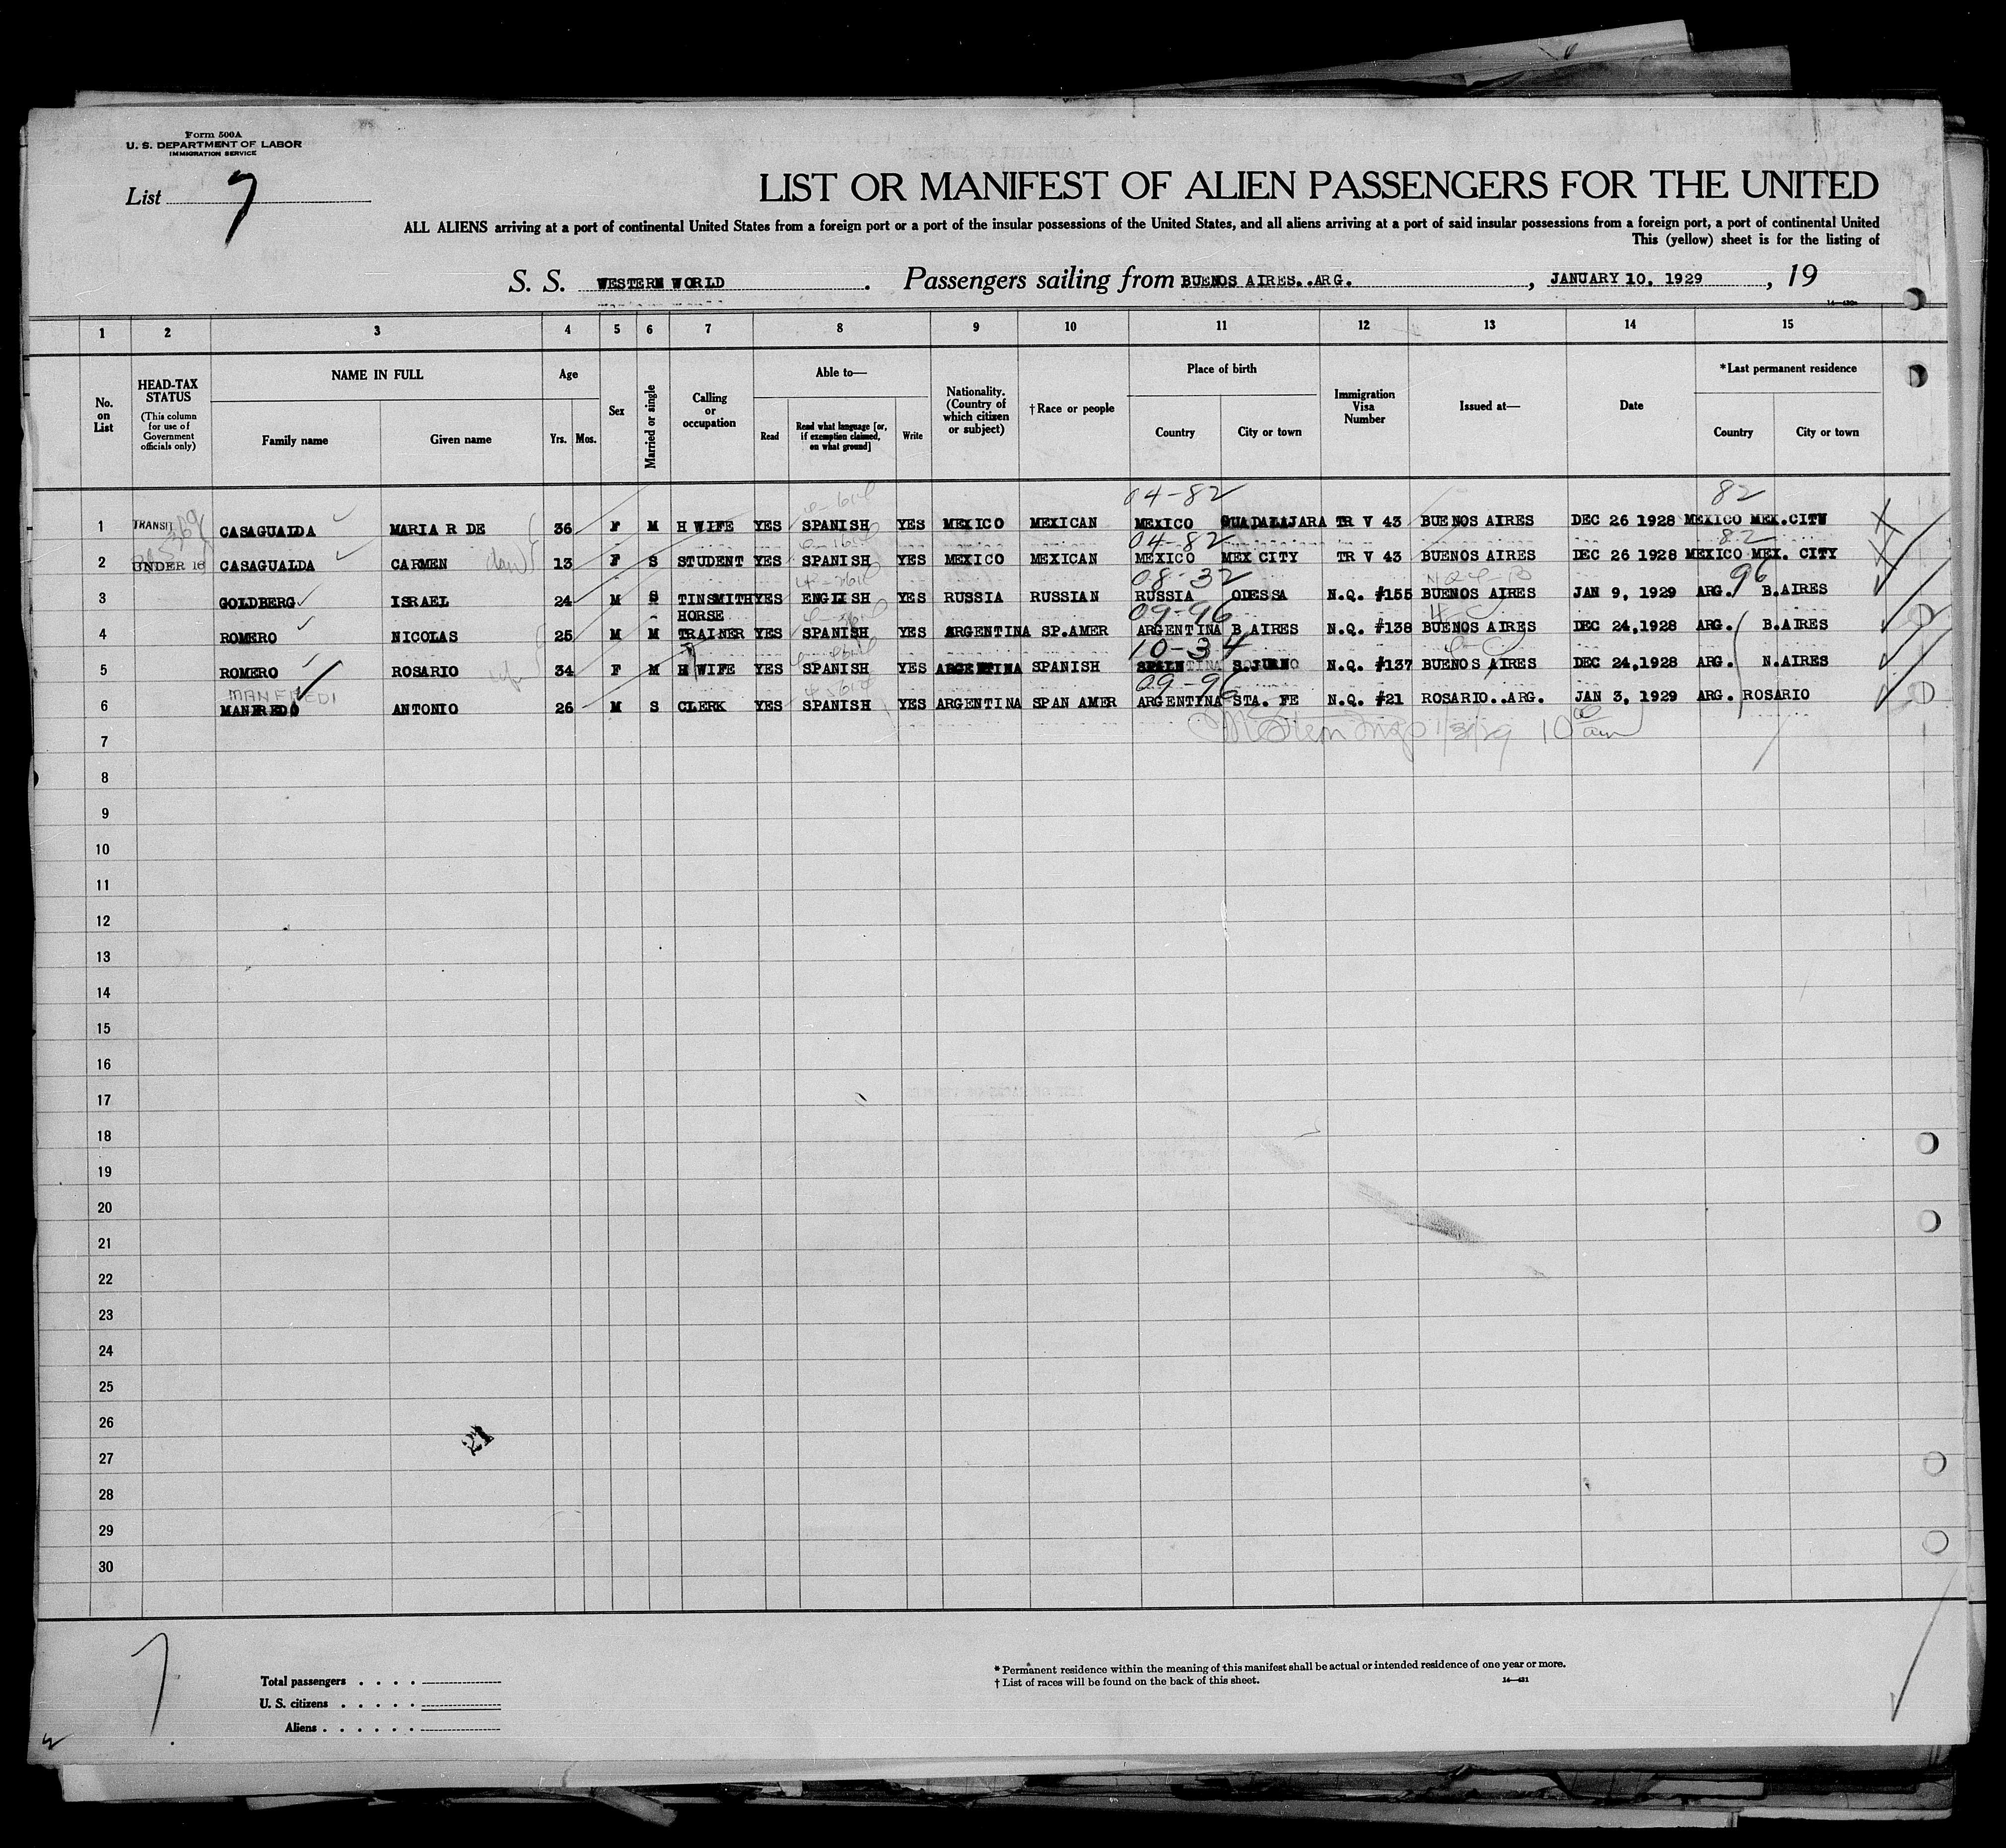 Form 500A
U. S. DEPARTMENT OF LABOR
IMMIGRATION SERVICE
List 7
LIST OR MANIFEST OF ALIEN PASSENGERS FOR THE UNITED
ALL ALIENS arriving at a port of continental United States from a foreign port or a port of the insular possessions of the United States, and all aliens arriving at a port of said insular possessions from a foreign port, a port of continental United
This (yellow) sheet is for the listing of
S. S. WESTERN WORLD . Passengers sailing from BUENOS AIRES..ARG. , JANUARY 10, 1929 , 19
1 2 3 4 5 6 7 8 9 10 11 12 13 14 15
No. on List
HEAD-TAX STATUS
(This column for use of Government officials only)
NAME IN FULL
Family name Given name
Age
Yrs. Mos.
Sex
Married or single
Calling or occupation
Able to—
Read
Read what language [or, if exemption claimed, on what ground]
Write
Nationality. (Country of which citizen or subject)
† Race or people
Place of birth
Country City or town
Immigration Visa Number
Issued at—
Date
* Last permanent residence
Country City or town
04-82 82
1 TRANSIT CASAGUALDA MARIA R DE 36 F M H WIFE YES SPANISH YES MEXICO MEXICAN MEXICO GUADALAJARA TR V 43 BUENOS AIRES DEC 26 1928 MEXICO MEX.CITY
04-82 82
2 UNDER 16 CASAGUALDA CARMEN dau 13 F S STUDENT YES SPANISH YES MEXICO MEXICAN MEXICO MEX CITY TR V 43 BUENOS AIRES DEC 26 1928 MEXICO MEX. CITY
08-32 96
3 GOLDBERG ISRAEL 24 M S TINSMITH YES ENGLISH YES RUSSIA RUSSIAN RUSSIA ODESSA N.Q. #155 BUENOS AIRES JAN 9, 1929 ARG. B.AIRES
09-96
4 ROMERO NICOLAS 25 M M HORSE TRAINER YES SPANISH YES ARGENTINA SP.AMER ARGENTINA B AIRES N.Q. #138 BUENOS AIRES DEC 24,1928 ARG. B.AIRES
10-34
5 ROMERO ROSARIO 34 F M H WIFE YES SPANISH YES ARGENTINA SPANISH SPAIN N.Q. #137 BUENOS AIRES DEC 24,1928 ARG. N.AIRES
MANFREDI 09-96
6 MANFREDO ANTONIO 26 M S CLERK YES SPANISH YES ARGENTINA SPAN AMER ARGENTINA STA. FE N.Q. #21 ROSARIO..ARG. JAN 3, 1929 ARG. ROSARIO
7
8
9
10
11
12
13
14
15
16
17
18
19
20
21
22
23
24
25
26
21
27
28
29
30
7
Total passengers . . . .
U. S. citizens . . . . .
Aliens . . . . . .
* Permanent residence within the meaning of this manifest shall be actual or intended residence of one year or more.
† List of races will be found on the back of this sheet. 14—431